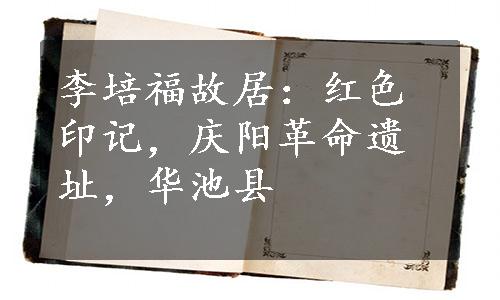 李培福故居：红色
印记，庆阳革命遗
址，华池县